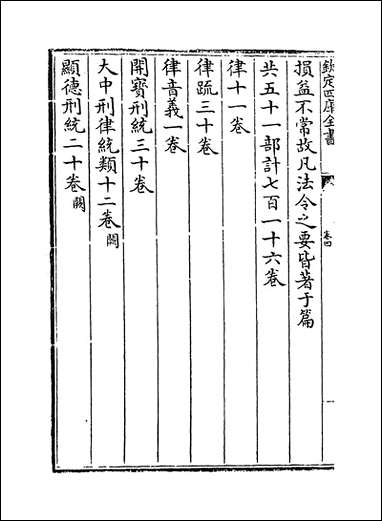 欽定四庫全書
卷四
損益不常故凡法令之要皆著于篇
共五十一部計七百一十六卷
律十一卷
律疏三十卷
律音義一卷
開寶刑統三十卷
大中刑律統類十二卷闕
顯德刑統二十卷闕